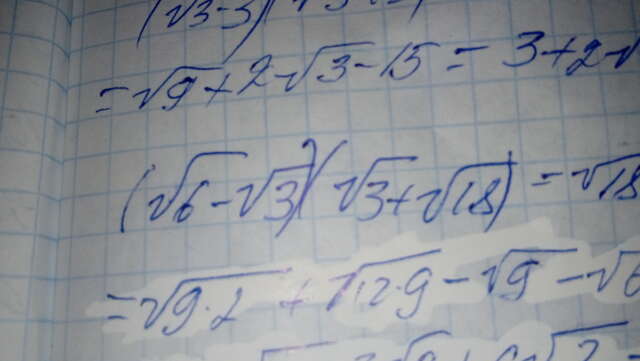 (√3-3)(
= √9+2√3-15 = 3+2√
(√6-√3)(√3+√18) = √18
= √9·2 + √12·9 - √9 - √6